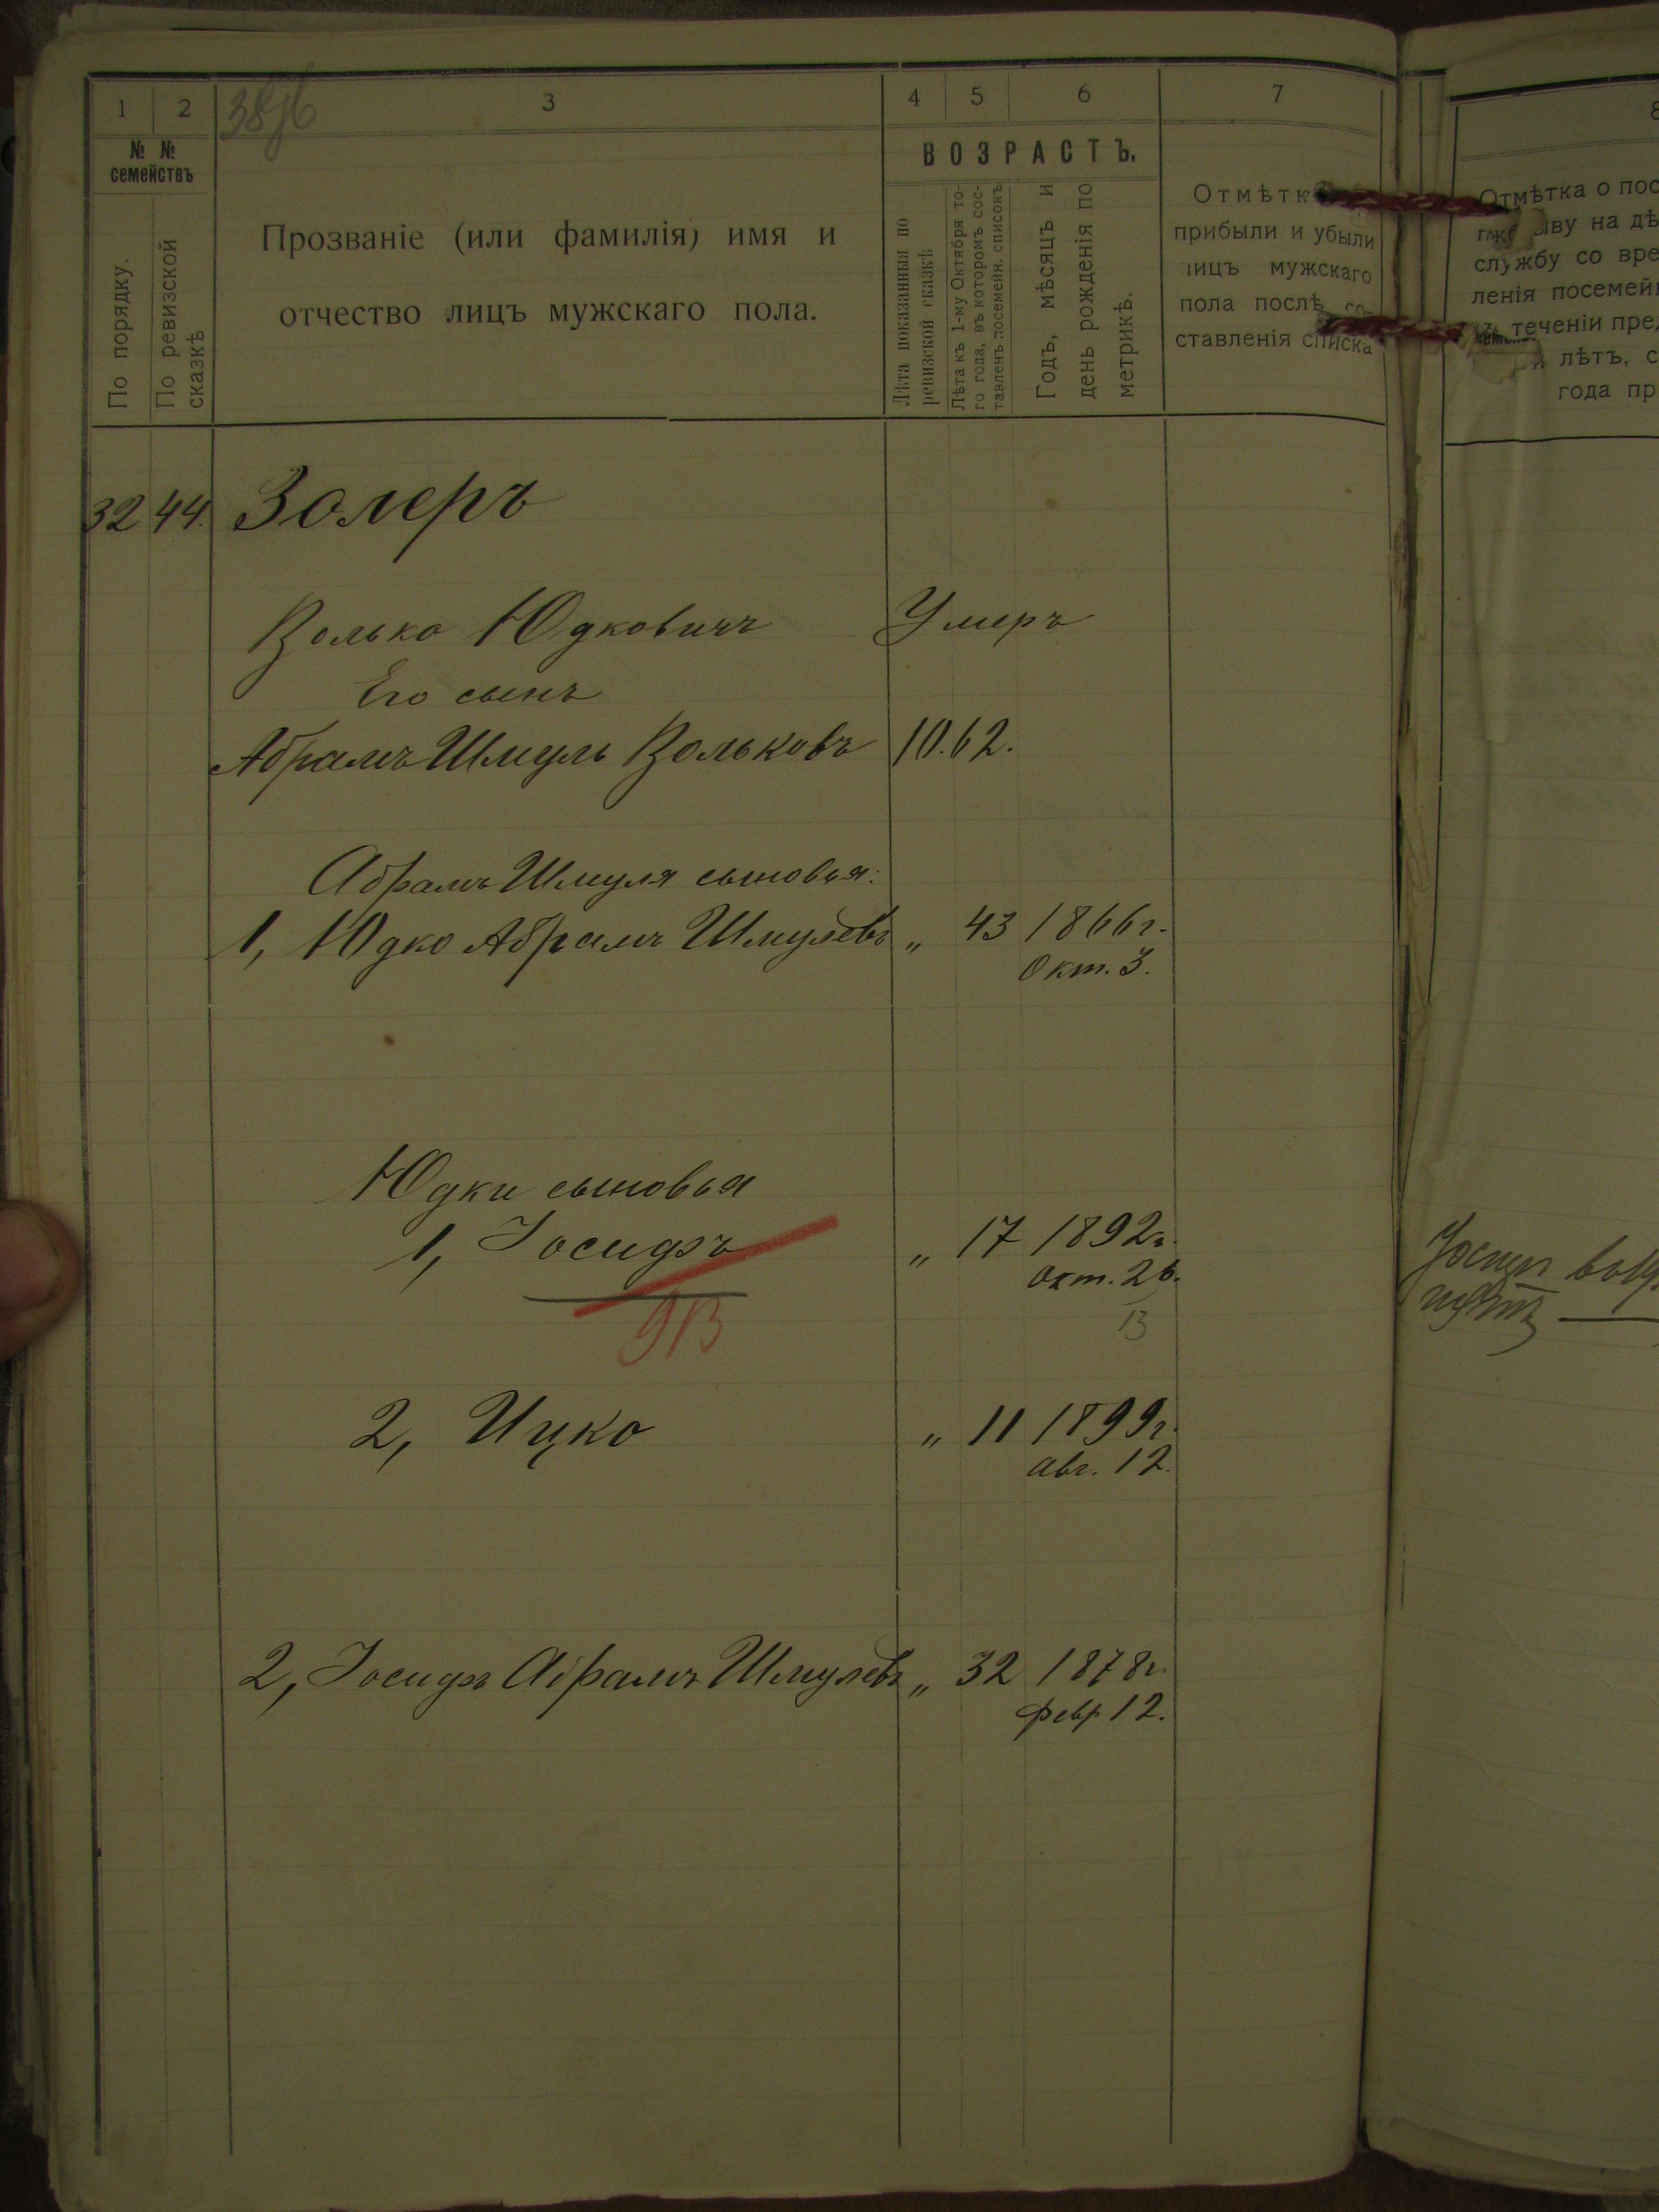 1 2 3 4 5 6 7
№ № семействъ
По порядку.
По ревизской сказкѣ
Прозваніе (или фамилія) имя и
отчество лицъ мужскаго пола.
ВОЗРАСТЪ.
Лѣта показанныя по
ревизской сказкѣ
Лѣта къ 1-му Октября то-
го года, въ которомъ сос-
тавленъ посемейн. списокъ
Годъ, мѣсяцъ и
день рожденія по
метрикѣ.
Отмѣтк
прибыли и убыли
лицъ мужскаго
пола послѣ со-
ставленія списка
8
Отмѣтка о пос
ыву на дѣ
службу со вре
ленія посемей
теченіи пред
лѣтъ, с
года пр
32 44. Золеръ
Волько Юдковичъ Умеръ
Его сынъ
Абрамъ Шмуль Вольковъ 10. 62.
Абрамъ Шмуля сыновья:
1, Юдко Абрамъ Шмулевъ „ 43 1866г.
Окт. 3.
Юдки сыновья
1, Іосифъ „ 17 1892г.
Окт. 26.
913
13
2, Ицко „ 11 1899г.
авг. 12.
2, Іосифъ Абрамъ Шмулевъ „ 32 1878г.
февр 12.